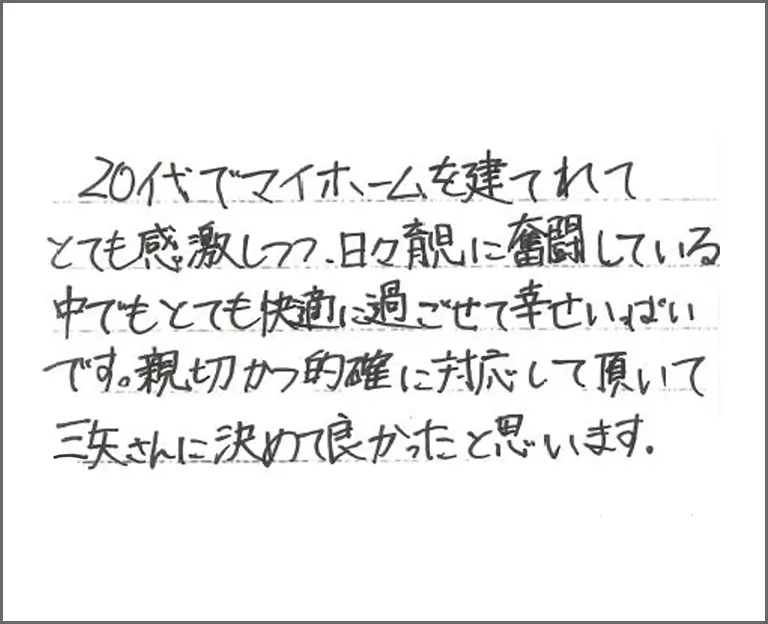 20代でマイホームを建てれて
とても感激しつつ、日々育児に奮闘している
中でもとても快適に過ごせて幸せいっぱい
です。親切かつ的確に対応して頂いて
三矢さんに決めて良かったと思います。